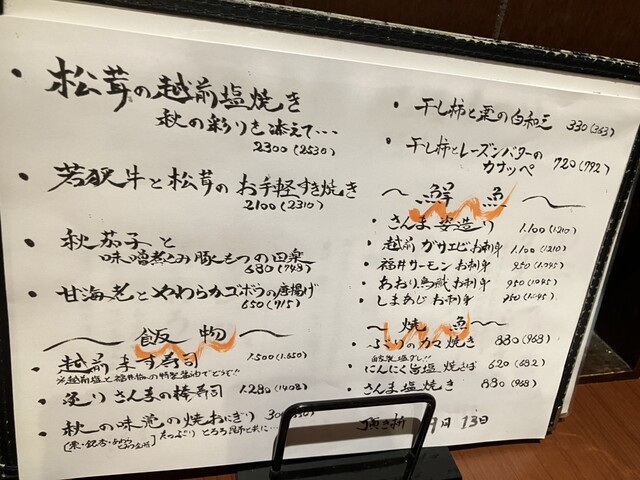 ・松茸の越前塩焼き
秋の彩りを添えて…
2300(2530)
・若狭牛と松茸の お手軽すき焼き
2100(2310)
・秋茄子と
味噌煮込み豚もつの田楽
680(748)
・甘海老とやわらかゴボウの唐揚げ
650(715)
〜飯物〜
・越前ます寿司 1.500(1.650)
・炙りさんまの棒寿司 1.280(1408)
・秋の味覚の焼おにぎり
たっぷりとろろ昆布と共に…
・干し柿と栗の白和え 330(363)
・干し柿とレーズンバターの
カナッペ 720(792)
〜鮮魚〜
・さんま姿造り 1.100(1210)
・越前ガサエビお刺身 1.100(1210)
・福井サーモンお刺身 950(1.045)
・あおり烏賊お刺身 950(1045)
・しまあじお刺身 950(1.045)
〜焼魚〜
・ぶりのカマ焼き 880(968)
・にんにく旨塩焼さば 620(682)
・さんま塩焼き 880(968)
月13日